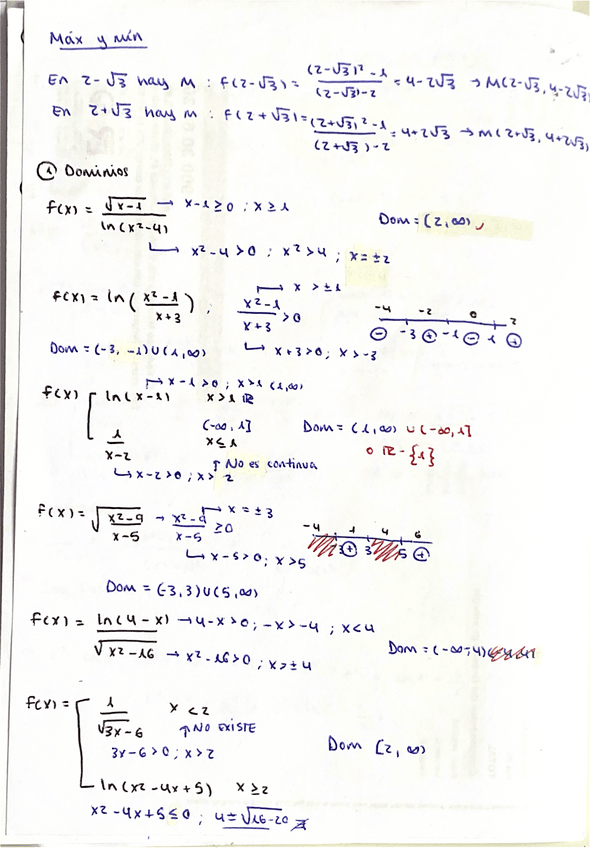 Máx y mín
En 2-√3 hay M : f(2-√3) = ((2-√3)² - 1)/((2-√3)-2) = 4-2√3 → M(2-√3, 4-2√3)
En 2+√3 hay m : f(2+√3) = ((2+√3)² - 1)/((2+√3)-2) = 4+2√3 → M(2+√3, 4+2√3)
① Dominios
f(x) = √(x-1) / ln(x²-4) → x-1≥0 ; x≥1
Dom = (2,∞)
→ x²-4>0 ; x²>4 ; x=±2
f(x) = ln((x²-1)/(x+3)) ; (x²-1)/(x+3) >0 → x>±1
-4 -2 0 2
⊖ -3 ⊕ -1 ⊖ 1 ⊕
Dom = (-3, -1)∪(1,∞) → x+3>0 ; x>-3
→ x-1>0 ; x>1 (1,∞)
f(x) [ ln(x-1) x>1 ℝ
(-∞, 1]
1/(x-2) x≤1
Dom = (1,∞) ∪ (-∞, 1]
o ℝ-{1}
↑ No es continua
→ x-2>0 ; x>2
f(x) = √((x²-9)/(x-5)) → (x²-9)/(x-5) ≥0 → x=±3
-4 1 4 6
⊕ 3 5 ⊕
→ x-5>0 ; x>5
Dom = (-3,3)∪(5,∞)
f(x) = ln(4-x) / √(x²-16) → 4-x>0 ; -x>-4 ; x<4
→ x²-16>0 ; x>±4
Dom = (-∞,-4)
f(x) = [ 1/√(3x-6) x<2
↑ NO EXISTE
3x-6>0 ; x>2
Dom [2, ∞)
ln(x²-4x+5) x≥2
x²-4x+5≤0 ; 4±√(16-20) ∄